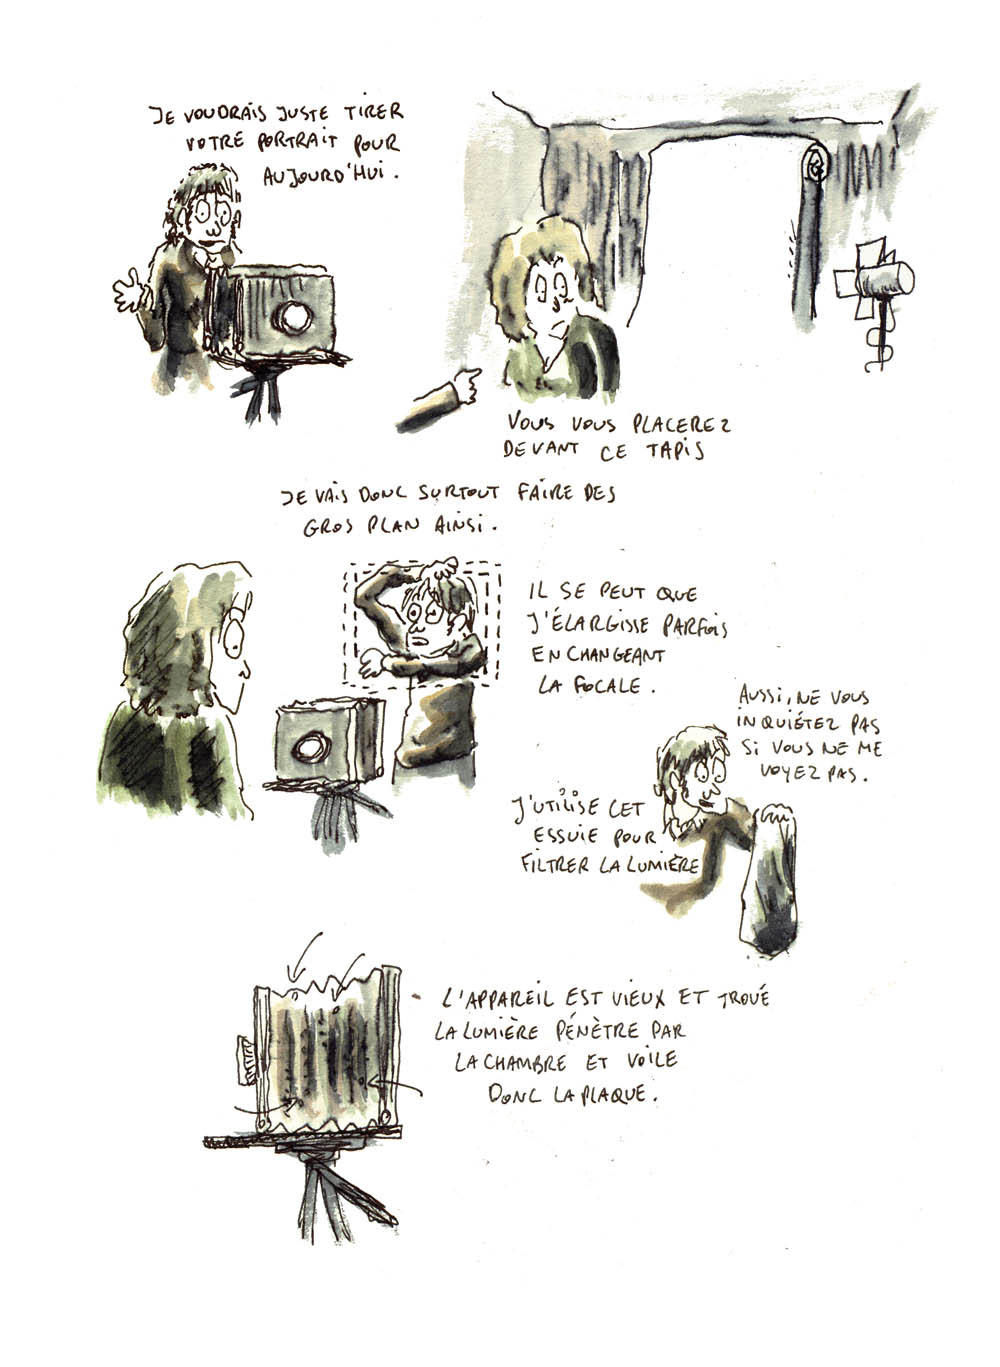 JE VOUDRAIS JUSTE TIRER
VOTRE PORTRAIT POUR
AUJOURD'HUI.
VOUS VOUS PLACEREZ
DEVANT CE TAPIS
JE VAIS DONC SURTOUT FAIRE DES
GROS PLAN AINSI.
IL SE PEUT QUE
J'ÉLARGISSE PARFOIS
EN CHANGEANT
LA FOCALE.
J'UTILISE CET
ESSUIE POUR
FILTRER LA LUMIÈRE
AUSSI, NE VOUS
INQUIÉTEZ PAS
SI VOUS NE ME
VOYEZ PAS.
L'APPAREIL EST VIEUX ET TROUÉ
LA LUMIÈRE PÉNÈTRE PAR
LA CHAMBRE ET VOILE
DONC LA PLAQUE.